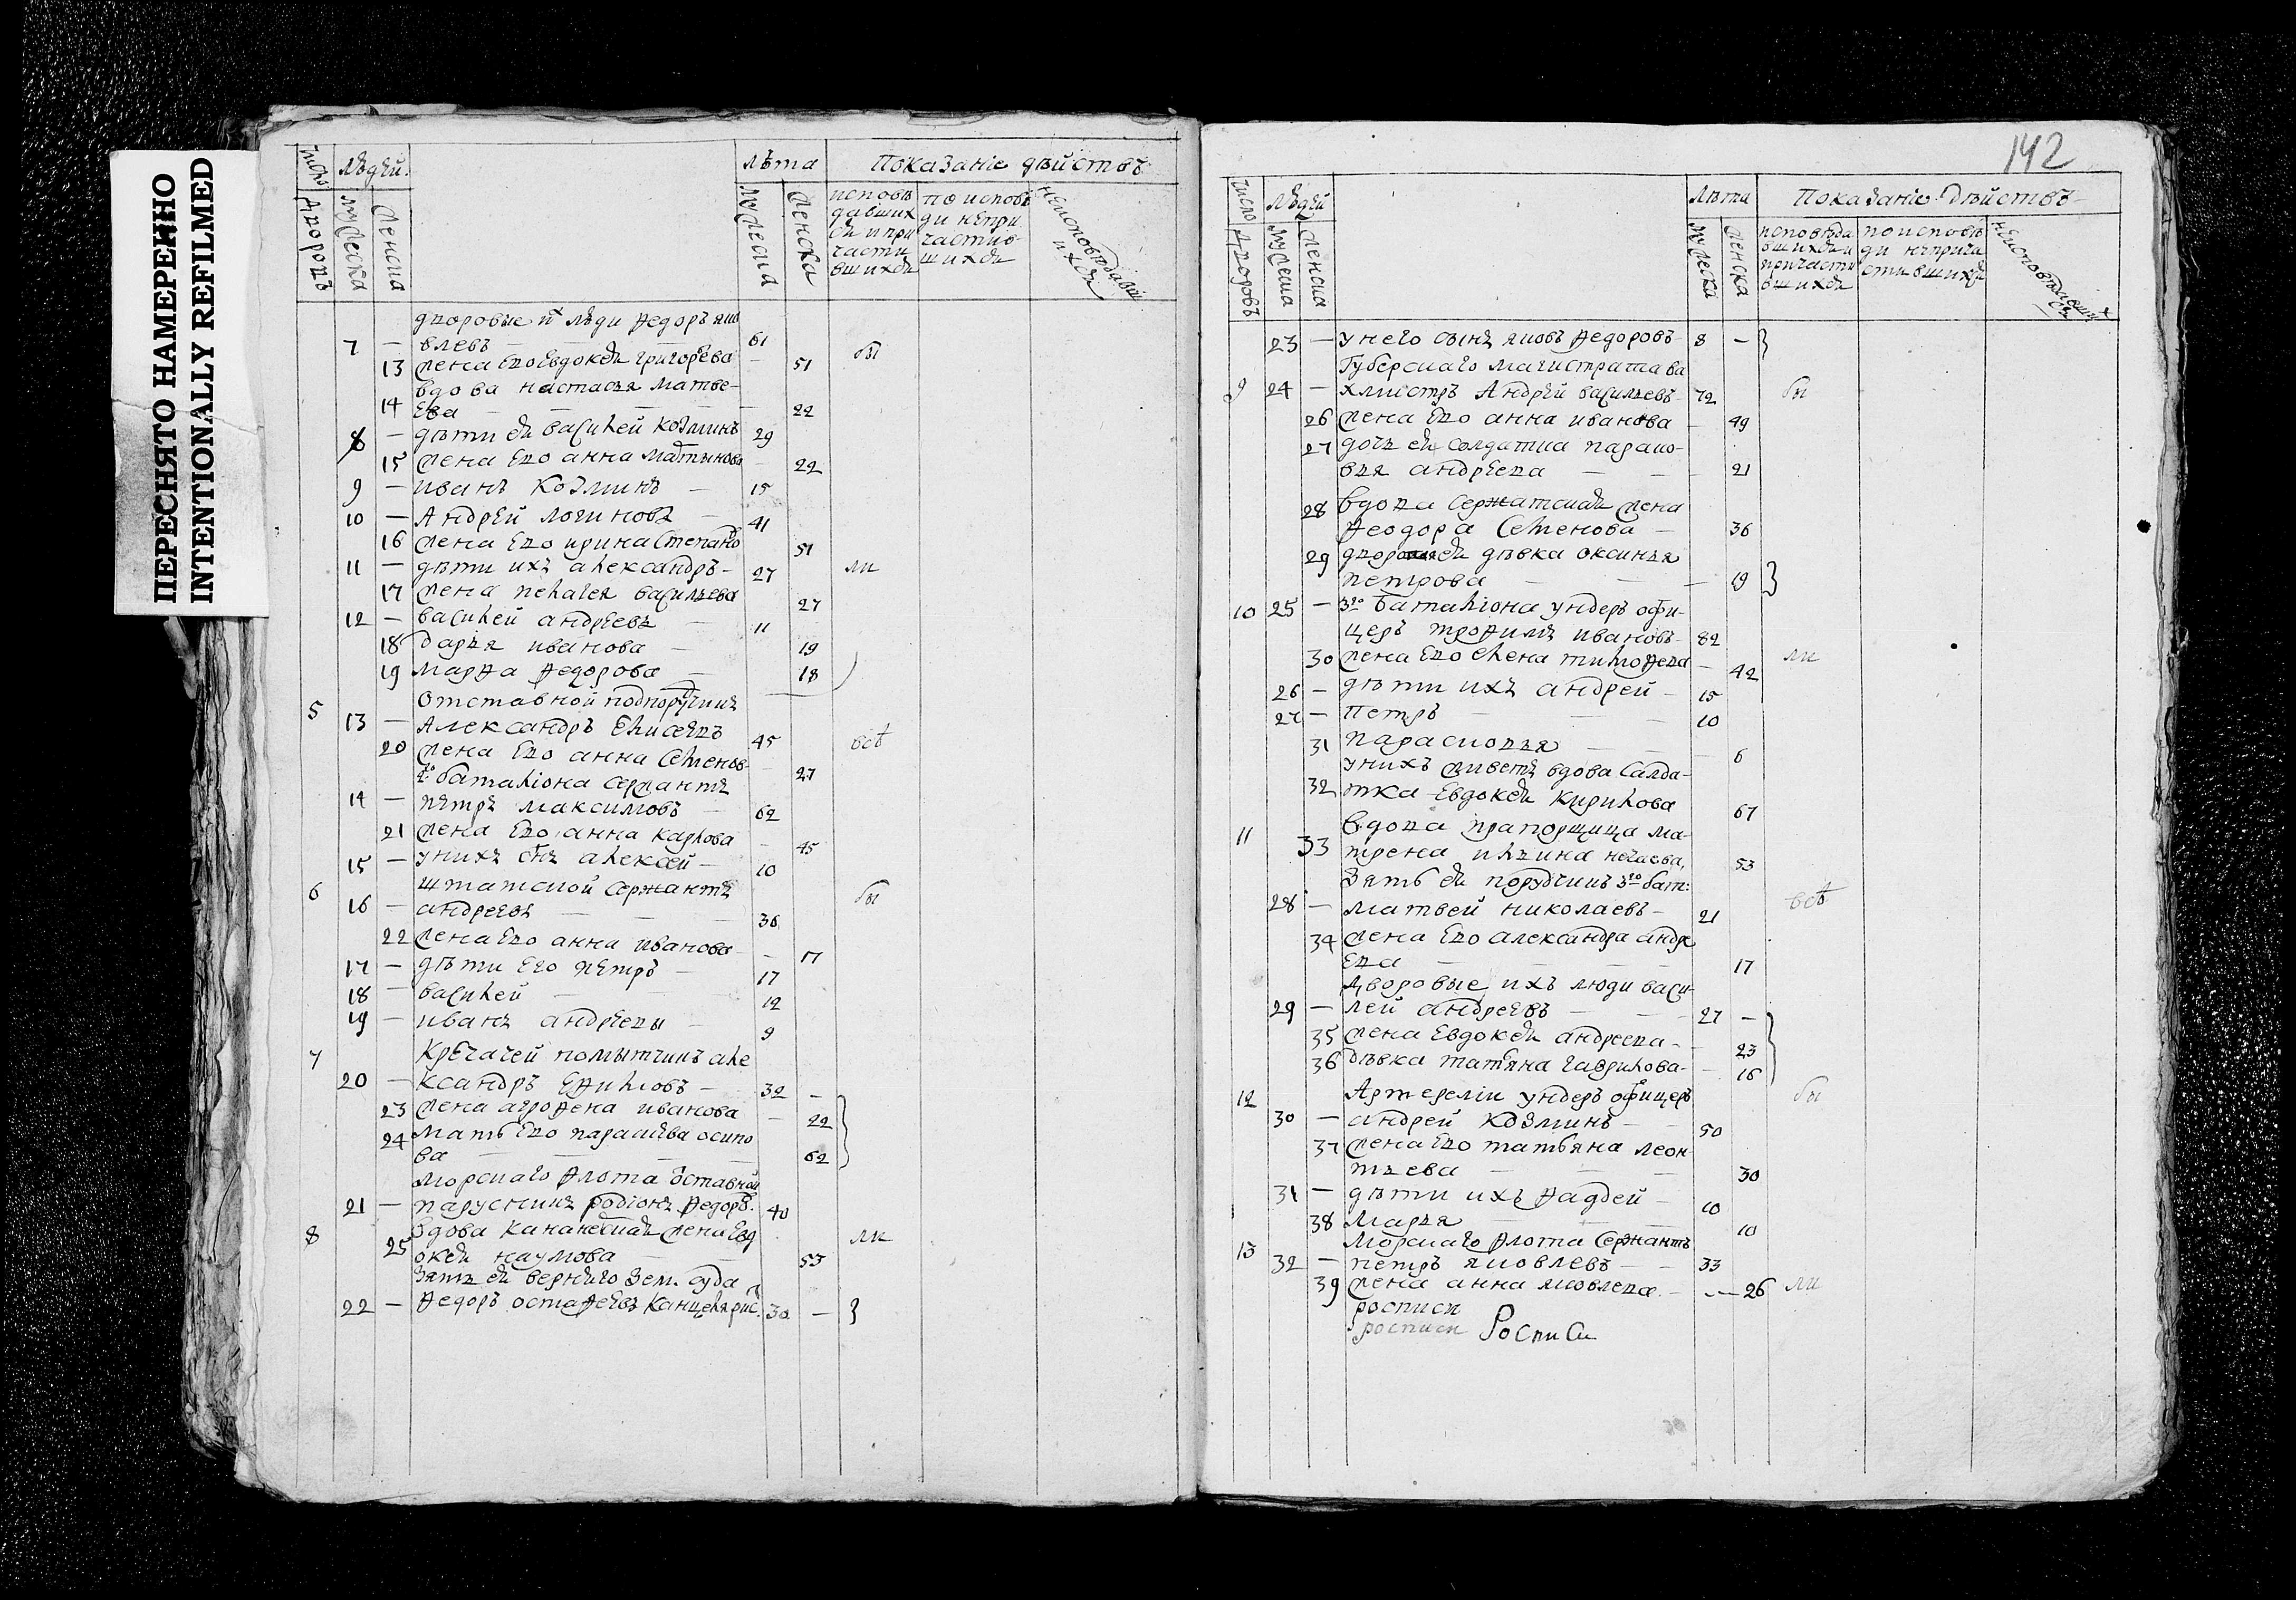 ПЕРЕСНЯТО НАМЕРЕННО
INTENTIONALLY REFILMED
число дворовъ
людей
мужеска
женска
лѣта
мужеска
женска
Показаніе дѣйствъ
исповѣ
давших
ся и при
части
вшихся
по исповѣ
ди непри
частив
шихся
неисповѣдавш
ихся
дворовые их люди Федоръ яко
7 — влевъ — 61
13 жена его Евдокея григорьева — 51 бы
вдова настасья матве-
14 ева — 22
8 — дѣти ея василей козминъ 29
15 жена его анна мартынова — 22
9 — иванъ козминъ — 15
10 — Андрей логиновъ — 41
16 жена его ирина степано 51
11 — дѣти ихъ александръ — 27 ли
17 жена пелагея васильева 27
12 — василей андреевъ — 11
18 дарья иванова — 19
19 марфа федорова — 18
5 отставной подпорутчикъ
13 — Александръ Елисеевъ 45 всѣ
20 жена его анна семенов- 27
2го баталіона сержантъ
14 — петръ максимовъ — 62
21 жена его анна карпова — 45
15 — у нихъ сынъ алексей — 10
6 штатской сержантъ бы
16 — андреевъ — 36
22 жена его анна иванова — 17
17 — дѣти его петръ — 17
18 — василей 12
19 — иванъ андреевы — 9
7 алe
20 — ксандръ Ефимовъ — 32 —
23 жена агрофена иванова — 22
24 мать его параскева осипо
ва — 62
морскаго флота отставной
21 — парусникъ родіонъ федоро. 40
8 25 вдова жена Евд ли
окея наумова 53
зять ея верхнего зем. суда
22 — Федоръ остафьевъ канцелярис. 30 —
142
число дворовъ
людей
мужеска
женска
лѣта
мужеска
женска
Показаніе дѣйствъ
исповѣда
вшихся и
причасти
вшихся
по исповѣ
ди неприча
стившихся
неисповѣдавших
ся
23 — у него сынъ яковъ федоровъ 8 —
Губерскаго магистрата ва
9 24 — хмистръ Андрей васильевъ 72 бы
26 жена его анна иванова — 49
27 дочь ея солдатка параско-
вья андреева — 21
28 вдова сержатская жена
Феодора Семенова — 36
29 дворовая дѣвка оксинья
петрова — 19
10 25 — 3го баталіона ундеръ офи-
церъ трофимъ ивановъ — 82
30 жена его елена тимофева — 42 ли
26 — дѣти ихъ андрей — 15
27 — петръ — 10
31 парасковья — 6
у нихъ живетъ вдова салда-
32 тка Евдокея кирилова 67
11 33 вдова прапорщица ма-
трена ильина нечаева, 53
зять ея порутчикъ 3го бат:
28 — матвей николаевъ — 21 всѣ
34 жена его александра андре
ева — 17
дворовые ихъ люди васи-
29 — лей андреевъ — 27 —
35 жена Евдокея андреева — 23
36 дѣвка татьяна гаврилова — 16
12 Артерелiи ундеръ офицеръ бы
30 — андрей козминъ — 50
37 жена его татьяна леон-
тьева — 30
31 — дѣти ихъ фаддей — 10
38 марья — 10
13 морскаго флота сержантъ
32 — петръ яковлевъ — 33
39 жена анна яковлева — 26 ли
росписи
росписи Росписи